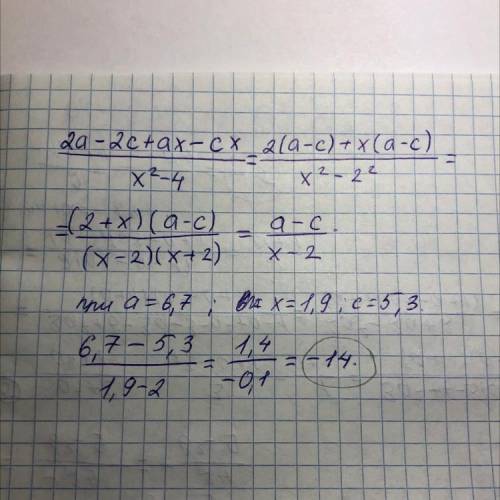 (2a-2c+ax-cx)/(x²-4) = (2(a-c)+x(a-c))/(x²-2²) =
= ((2+x)(a-c))/((x-2)(x+2)) = (a-c)/(x-2).
при a=6,7; x=1,9; c=5,3.
(6,7-5,3)/(1,9-2) = 1,4/-0,1 = -14.